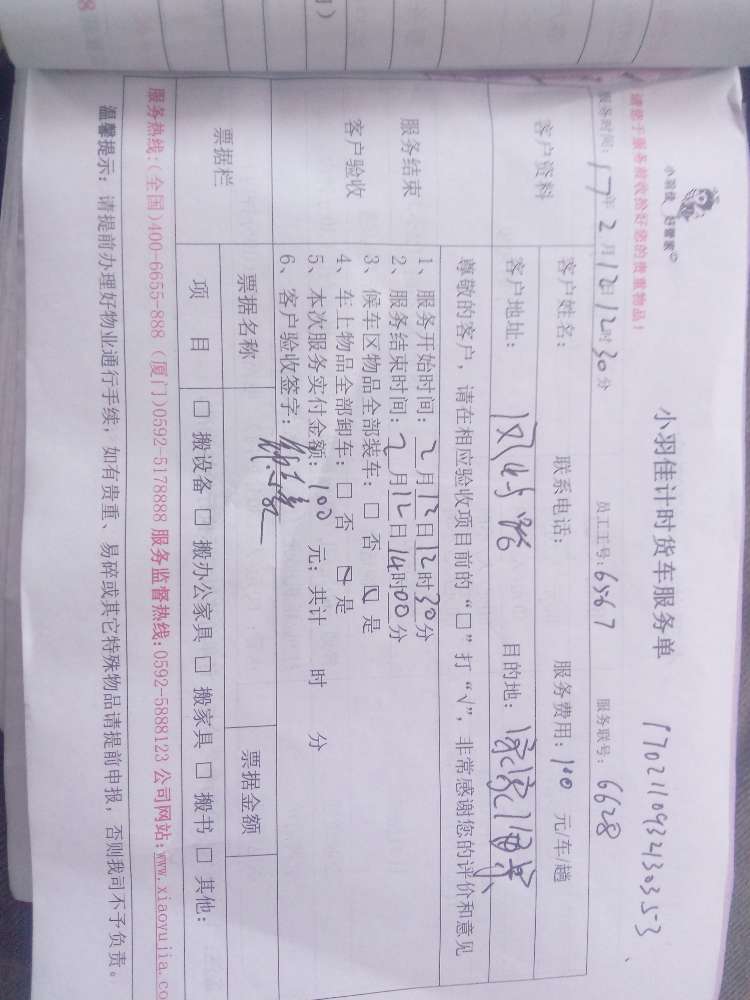 小羽佳 好管家
小羽佳计时货车服务单
17021109321303553
请您于服务前收捡好您的贵重物品！
服务时间：17年2月12日12时30分 员工工号：6567 服务联号：6628
客户资料
客户姓名： 联系电话： 服务费用：100 元/车/趟
客户地址： 目的地：
尊敬的客户，请在相应验收项目前的“□”打“√”，非常感谢您的评价和意见
服务结束
客户验收
1、服务开始时间：2月12日12时30分
2、服务结束时间：2月12日14时00分
3、候车区物品全部装车：□ 否 ☑ 是
4、车上物品全部卸车：□ 否 ☑ 是
5、本次服务实付金额：100 元；共计 时 分
6、客户验收签字：
票据栏
票据名称 票据金额
项 目 □ 搬设备 □ 搬办公家具 □ 搬家具 □ 搬书 □ 其他：
服务热线：(全国)400-6655-888 (厦门)0592-5178888 服务监督热线：0592-5888123 公司网站：www.xiaoyujia.co
温馨提示：请提前办理好物业通行手续；如有贵重、易碎或其它特殊物品请提前申报，否则我司不予负责。